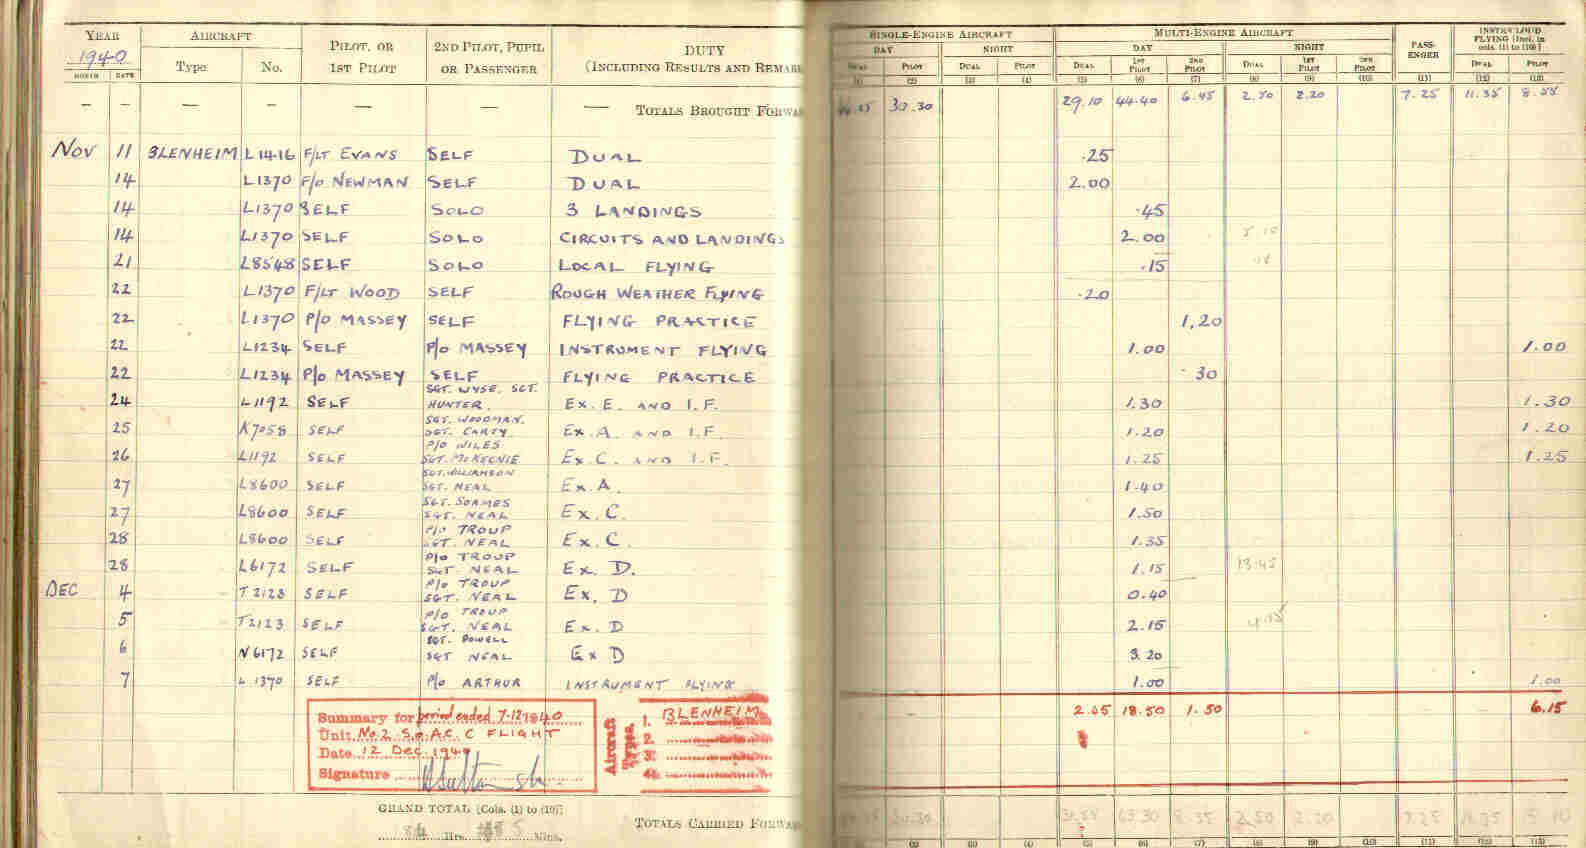 YEAR AIRCRAFT PILOT, OR 2ND PILOT, PUPIL DUTY SINGLE-ENGINE AIRCRAFT MULTI-ENGINE AIRCRAFT PASS- INSTR/CLOUD
1940 Type No. 1ST PILOT OR PASSENGER (INCLUDING RESULTS AND REMARK DAY NIGHT DAY NIGHT ENGER FLYING [Incl. in
cols. (1) to (10)]
MONTH DATE DUAL PILOT DUAL PILOT DUAL 1ST PILOT 2ND PILOT DUAL 1ST PILOT 2ND PILOT DUAL PILOT
(1) (2) (3) (4) (5) (6) (7) (8) (9) (10) (11) (12) (13)
— — — — — — — TOTALS BROUGHT FORWA 30.30 29.10 44.40 6.45 2.50 2.20 7.25 11.35 8.55
NOV 11 BLENHEIM L1416 F/LT EVANS SELF DUAL .25
14 L1370 F/O NEWMAN SELF DUAL 2.00
14 L1370 SELF SOLO 3 LANDINGS .45
14 L1370 SELF SOLO CIRCUITS AND LANDINGS 2.00 5.10
21 L8548 SELF SOLO LOCAL FLYING .15
22 L1370 F/LT WOOD SELF ROUGH WEATHER FLYING .20
22 L1370 P/O MASSEY SELF FLYING PRACTICE 1.20
22 L1234 SELF P/O MASSEY INSTRUMENT FLYING 1.00 1.00
22 L1234 P/O MASSEY SELF FLYING PRACTICE .30
SGT. WYSE. SGT.
24 L1192 SELF HUNTER. Ex. E. AND I.F. 1.30 1.30
SGT. WOODMAN.
25 K7058 SELF SGT. CARTY. Ex. A. AND I.F. 1.20 1.20
P/O WILES
26 L1192 SELF SGT. McKECNIE Ex. C. AND I.F. 1.25 1.25
SGT. WILLIAMSON
27 L8600 SELF SGT. NEAL Ex. A. 1.40
SGT. SOAMES
27 L8600 SELF SGT. NEAL Ex. C. 1.50
P/O TROUP
28 L8600 SELF SGT. NEAL Ex. C. 1.35
P/O TROUP
28 L6172 SELF SGT NEAL Ex. D. 1.15 13.45
P/O TROUP
DEC 4 T2123 SELF SGT. NEAL Ex. D 0.40
P/O TROUP
5 T2123 SELF SGT. NEAL Ex. D 2.15 4.15
SGT. POWELL
6 N6172 SELF SGT NEAL Ex D 3.20
7 L1370 SELF P/O ARTHUR INSTRUMENT FLYING 1.00 1.00
2.05 18.50 1.50 6.15
Summary for period ended 7-12-1940
Unit No. 2 S.o.A.C. C FLIGHT
Date 12 Dec. 1940
Signature
Aircraft Types.
1. BLENHEIM
2.
3.
4.
GRAND TOTAL [Cols. (1) to (10)]
84 Hrs. Mins.
TOTALS CARRIED FORWA 30.30 63.30 8.35 2.50 2.20 7.25
(2) (3) (4) (5) (6) (7) (8) (9) (10) (11) (12) (13)